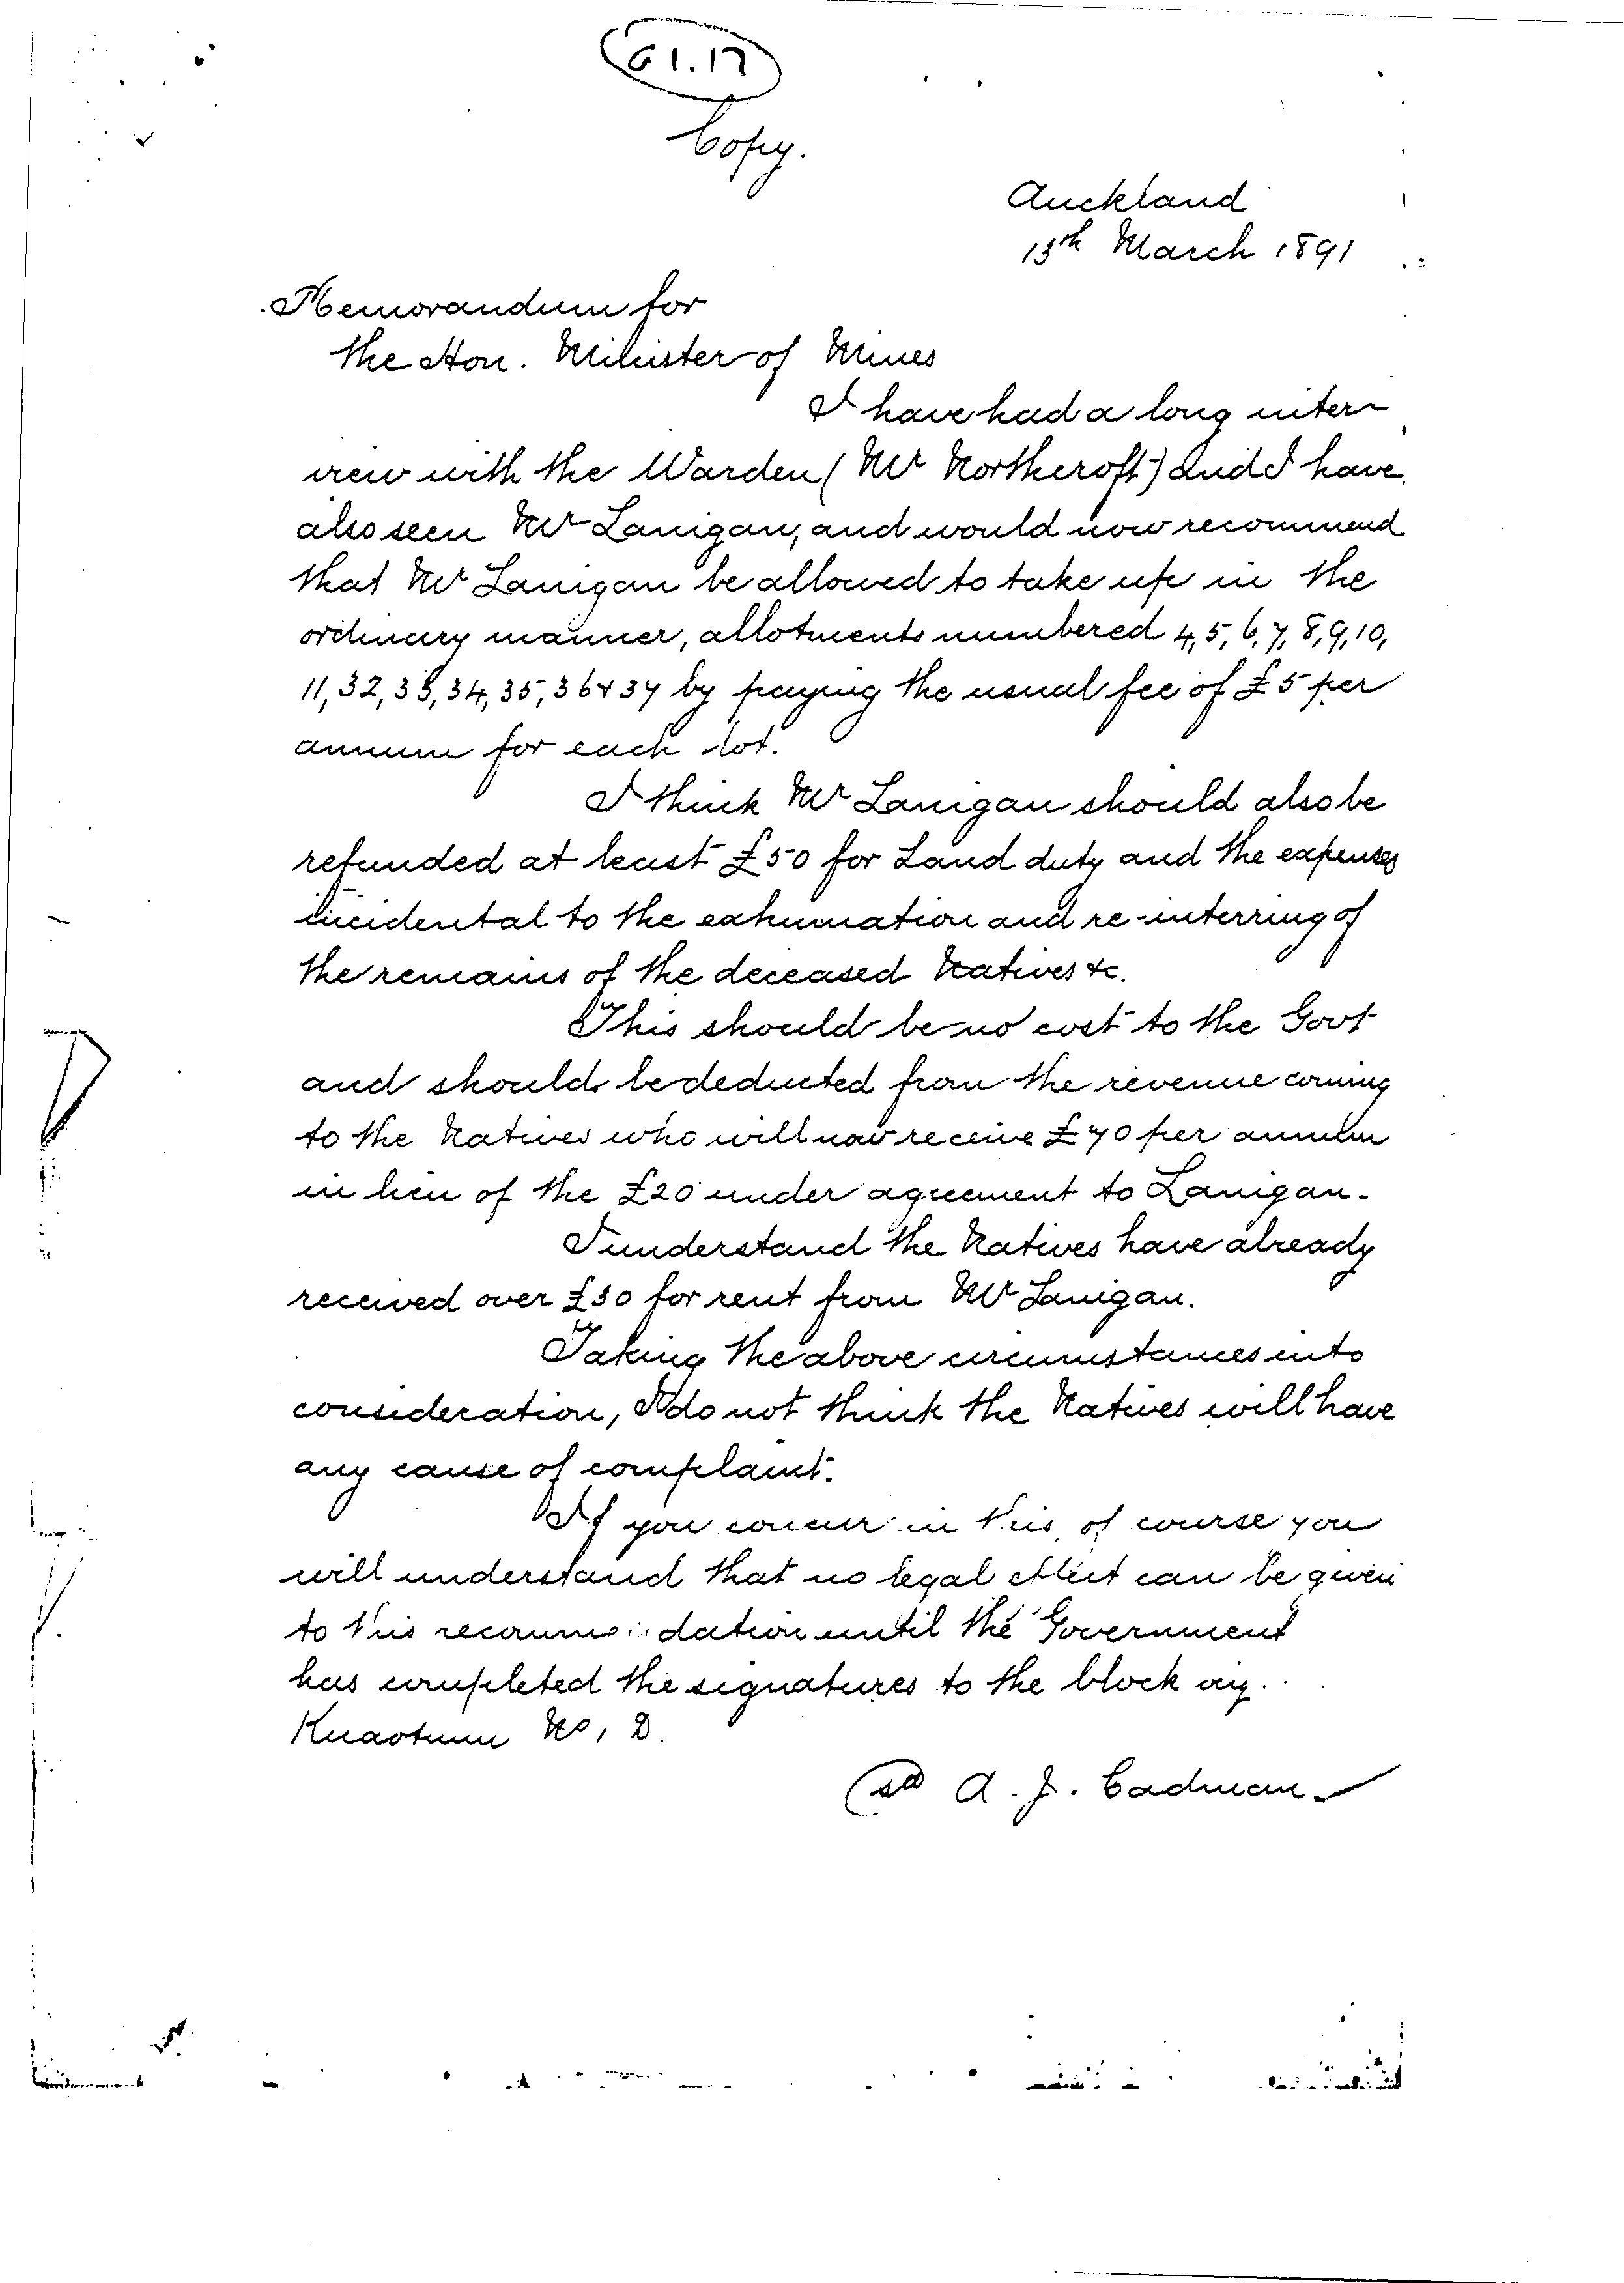 G1.17
Copy.
Auckland
13th March 1891
Memorandum for
the Hon. Minister of Mines
I have had a long inter-
view with the Warden (Mr Northcroft) and I have
also seen Mr Lanigan, and would now recommend
that Mr Lanigan be allowed to take up in the
ordinary manner, allotments numbered 4, 5, 6, 7, 8, 9, 10,
11, 32, 33, 34, 35, 36 & 37 by paying the usual fee of £5 per
annum for each lot.
I think Mr Lanigan should also be
refunded at least £50 for Land duty and the expenses
incidental to the exhumation and re-interring of
the remains of the deceased Natives &c.
This should be no cost to the Govt
and should be deducted from the revenue coming
to the Natives who will now receive £70 per annum
in lieu of the £20 under agreement to Lanigan.
I understand the Natives have already
received over £30 for rent from Mr Lanigan.
Taking the above circumstances into
consideration, I do not think the Natives will have
any cause of complaint.
If you concur in this, of course you
will understand that no legal effect can be given
to this recommendation until the Government
has completed the signatures to the block viz.
Kuaotunu No 1 D.
(sd A. J. Cadman.